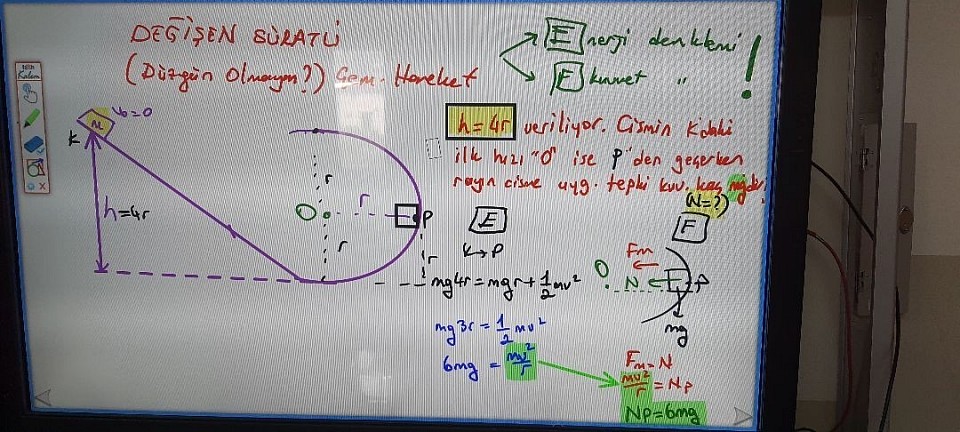 DEĞİŞEN SÜRATLİ
(Düzgün Olmayan?) Çem. Hareket
E nerji denklemi
F kuvvet "
!
Kalem
K
m
V₀=0
h=4r
r
O
r
P
r
r
h=4r veriliyor. Cismin K'daki
ilk hızı "0" ise P'den geçerken
rayın cisme uyg. tepki kuv. kaç mg'dir.
(N=?)
E
K→P
mg4r=mgr+1/2mv²
mg3r=1/2mv²
6mg=mv²/r
F
Fm
O
N
P
mg
Fm=N
mv²/r=Np
Np=6mg